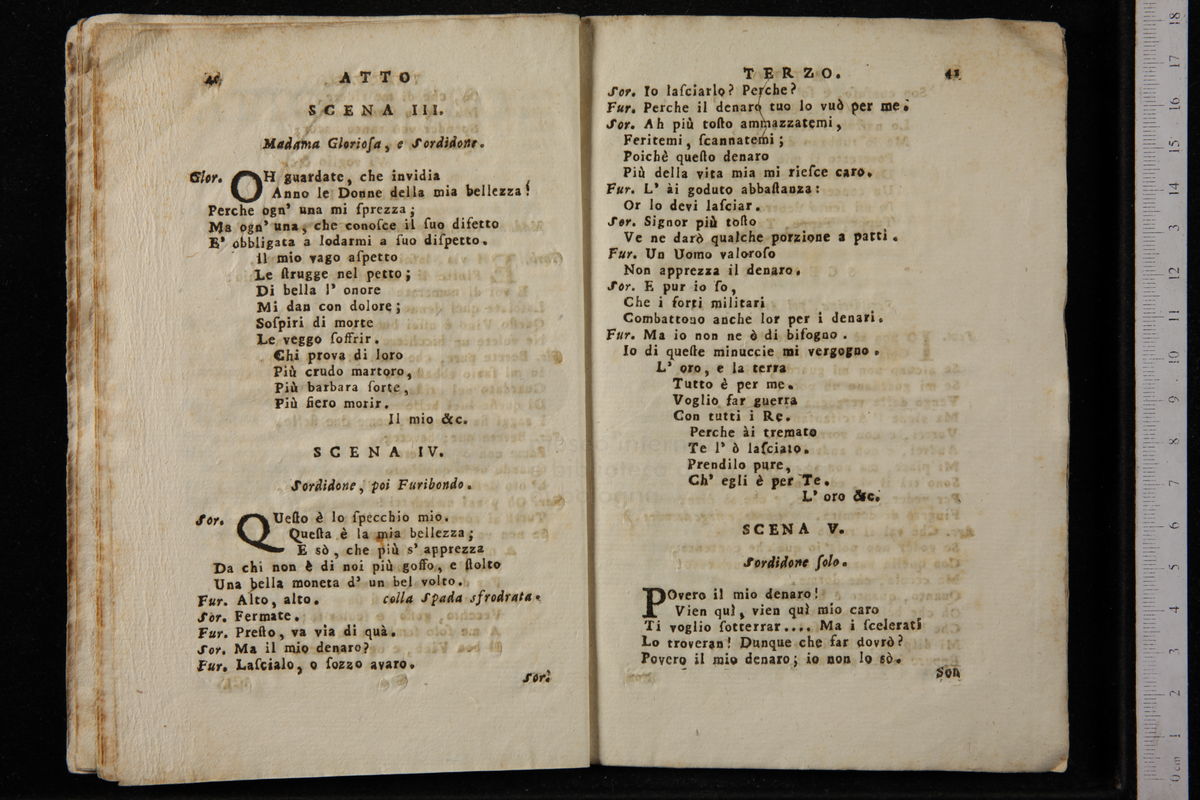 40 ATTO
SCENA III.
Madama Gloriosa, e Sordidone.
Glor. OH guardate, che invidia
Anno le Donne della mia bellezza!
Perche ogn' una mi ſprezza;
Ma ogn' una, che conoſce il ſuo difetto
E' obbligata a lodarmi a ſuo diſpetto.
Il mio vago aſpetto
Le ſtrugge nel petto;
Di bella l' onore
Mi dan con dolore;
Soſpiri di morte
Le veggo ſoffrir.
Chi prova di loro
Più crudo martoro,
Più barbara ſorte,
Più fiero morir.
Il mio &c.
SCENA IV.
Sordidone, poi Furibondo.
Sor. QUeſto è lo ſpecchio mio.
Queſta è la mia bellezza;
E sò, che più s' apprezza
Da chi non è di noi più goffo, e ſtolto
Una bella moneta d' un bel volto.
Fur. Alto, alto. colla Spada sfrodrata.
Sor. Fermate.
Fur. Preſto, va via di quà.
Sor. Ma il mio denaro?
Fur. Laſcialo, o ſozzo avaro.
Sor.
TERZO. 41
Sor. Io laſciarlo? Perche?
Fur. Perche il denaro tuo lo vuò per me.
Sor. Ah più toſto ammazzatemi,
Feritemi, ſcannatemi;
Poichè queſto denaro
Più della vita mia mi rieſce caro.
Fur. L' ài goduto abbaſtanza:
Or lo devi laſciar.
Sor. Signor più toſto
Ve ne darò qualche porzione a patti.
Fur. Un Uomo valoroſo
Non apprezza il denaro.
Sor. E pur io ſo,
Che i forti militari
Combattono anche lor per i denari.
Fur. Ma io non ne ò di biſogno.
Io di queſte minuccie mi vergogno.
L' oro, e la terra
Tutto è per me.
Voglio far guerra
Con tutti i Re.
Perche ài tremato
Te l' ò laſciato.
Prendilo pure,
Ch' egli è per Te.
L' oro &c.
SCENA V.
Sordidone ſolo.
POvero il mio denaro!
Vien quì, vien quì mio caro
Ti voglio ſotterrar.... Ma i ſcelerati
Lo troveran! Dunque che far dovrò?
Povero il mio denaro; io non lo sò.
Son